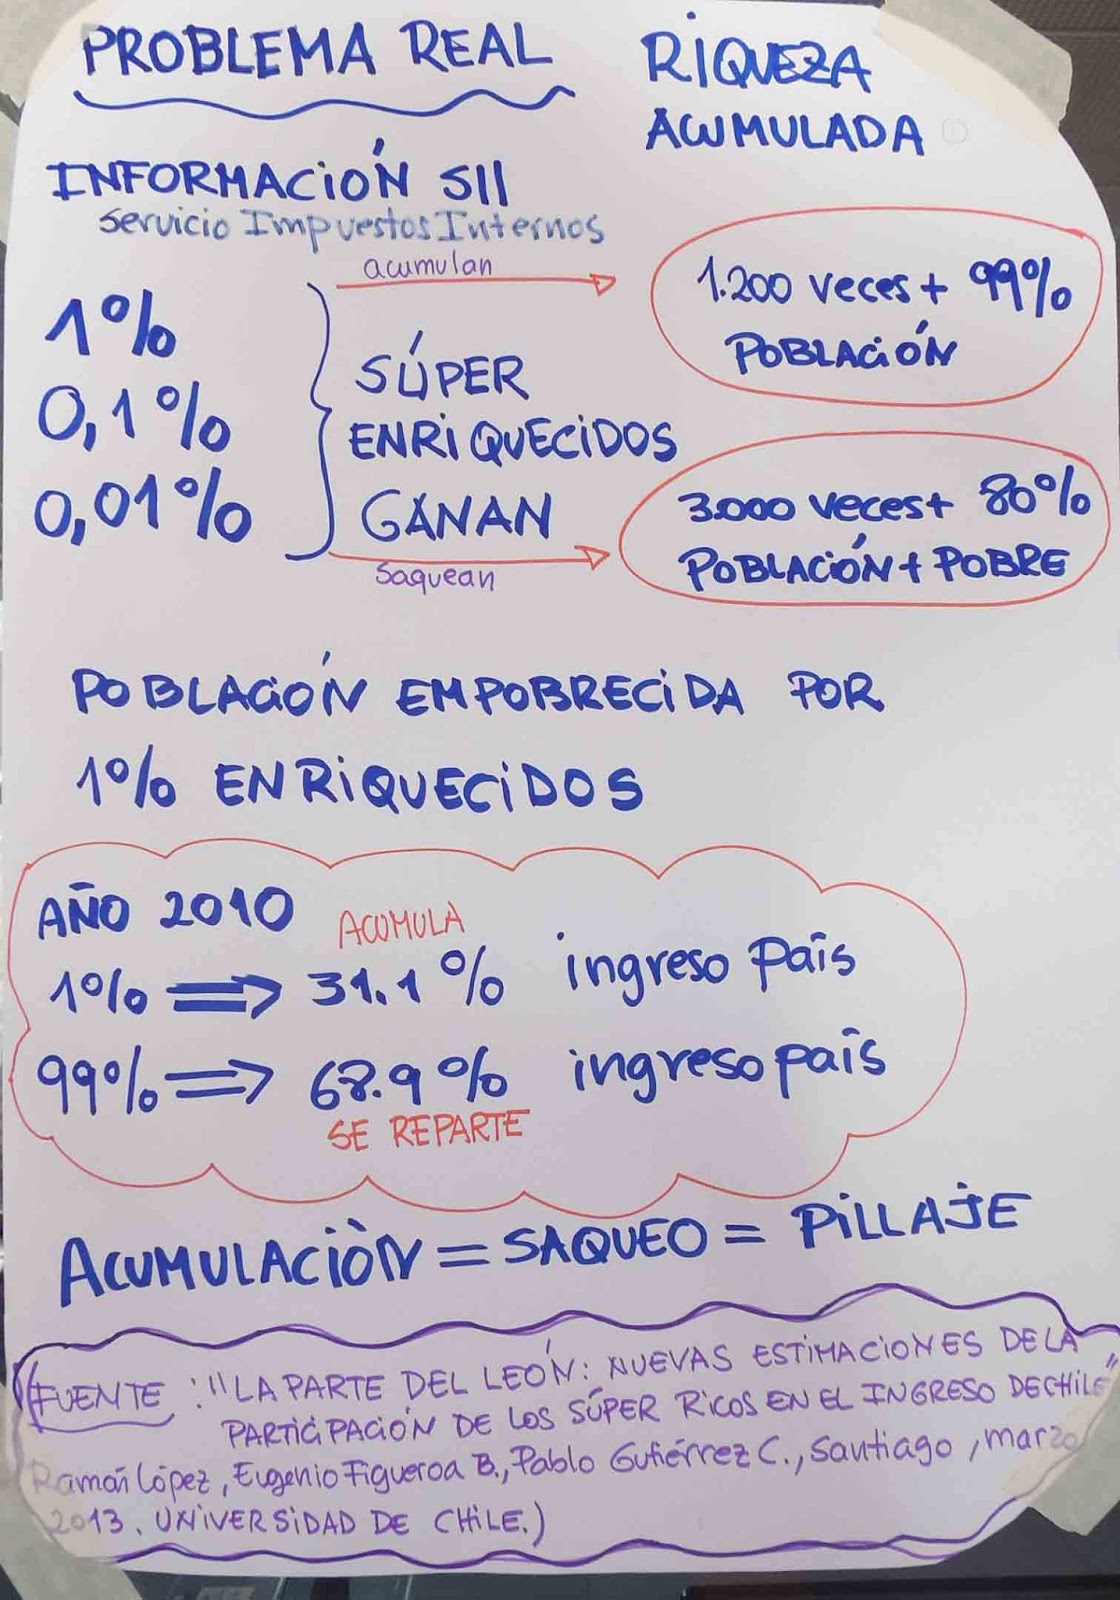 PROBLEMA REAL
RIQUEZA
ACUMULADA
INFORMACIÓN SII
Servicio Impuestos Internos
acumulan
1%
0,1%
0,01%
SÚPER
ENRIQUECIDOS
GANAN
saquean
1.200 veces + 99%
POBLACIÓN
3.000 veces + 80%
POBLACIÓN + POBRE
POBLACIÓN EMPOBRECIDA POR
1% ENRIQUECIDOS
AÑO 2010
ACUMULA
1% ⇒ 31.1% ingreso país
99% ⇒ 68.9% ingreso país
SE REPARTE
ACUMULACIÒN = SAQUEO = PILLAJE
(FUENTE: "LA PARTE DEL LEÓN: NUEVAS ESTIMACIONES DE LA
PARTICIPACIÓN DE LOS SÚPER RICOS EN EL INGRESO DE CHILE"
Ramón López, Eugenio Figueroa B., Pablo Gutiérrez C., Santiago, marzo
2013. UNIVERSIDAD DE CHILE.)